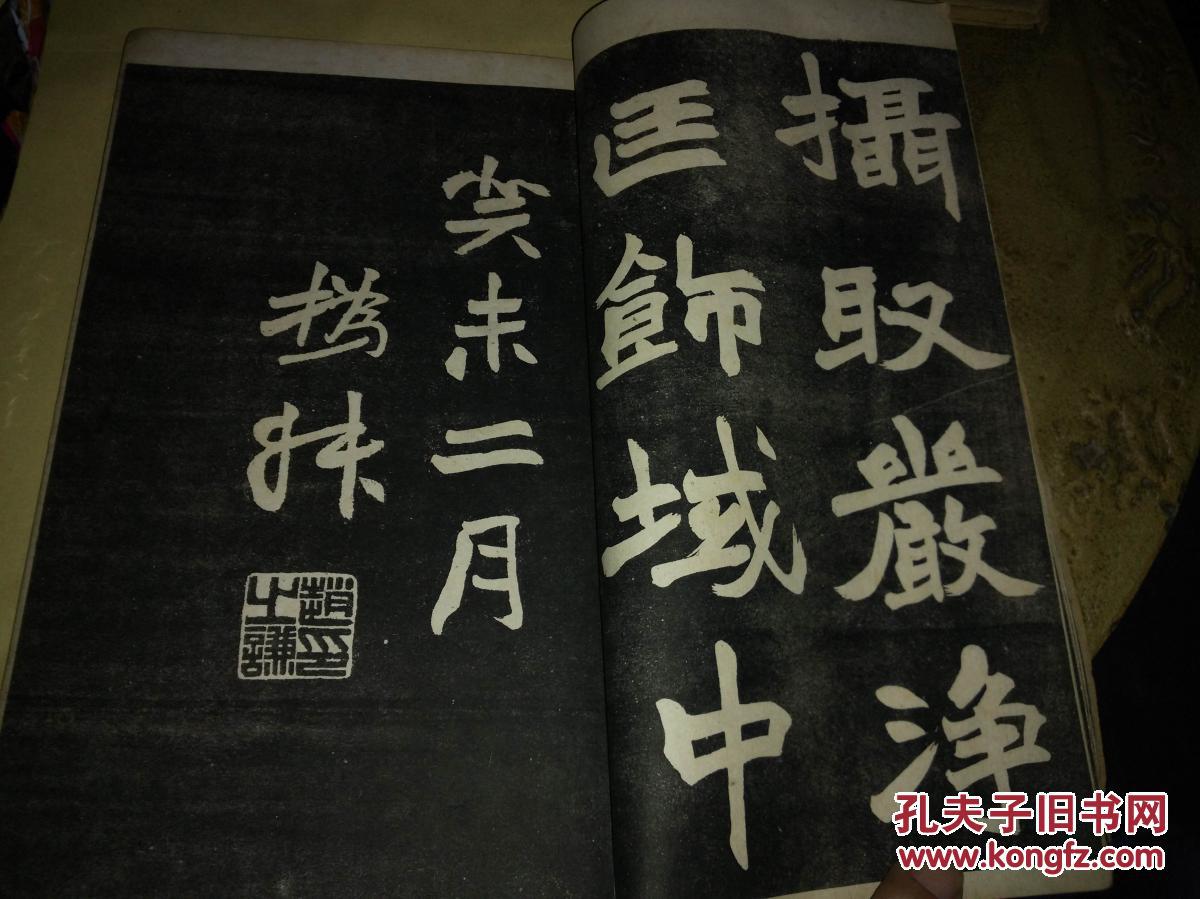 攝取嚴淨
匡飾域中
癸未二月
撝叔
趙印
之謙
孔夫子旧书网
www.kongfz.com